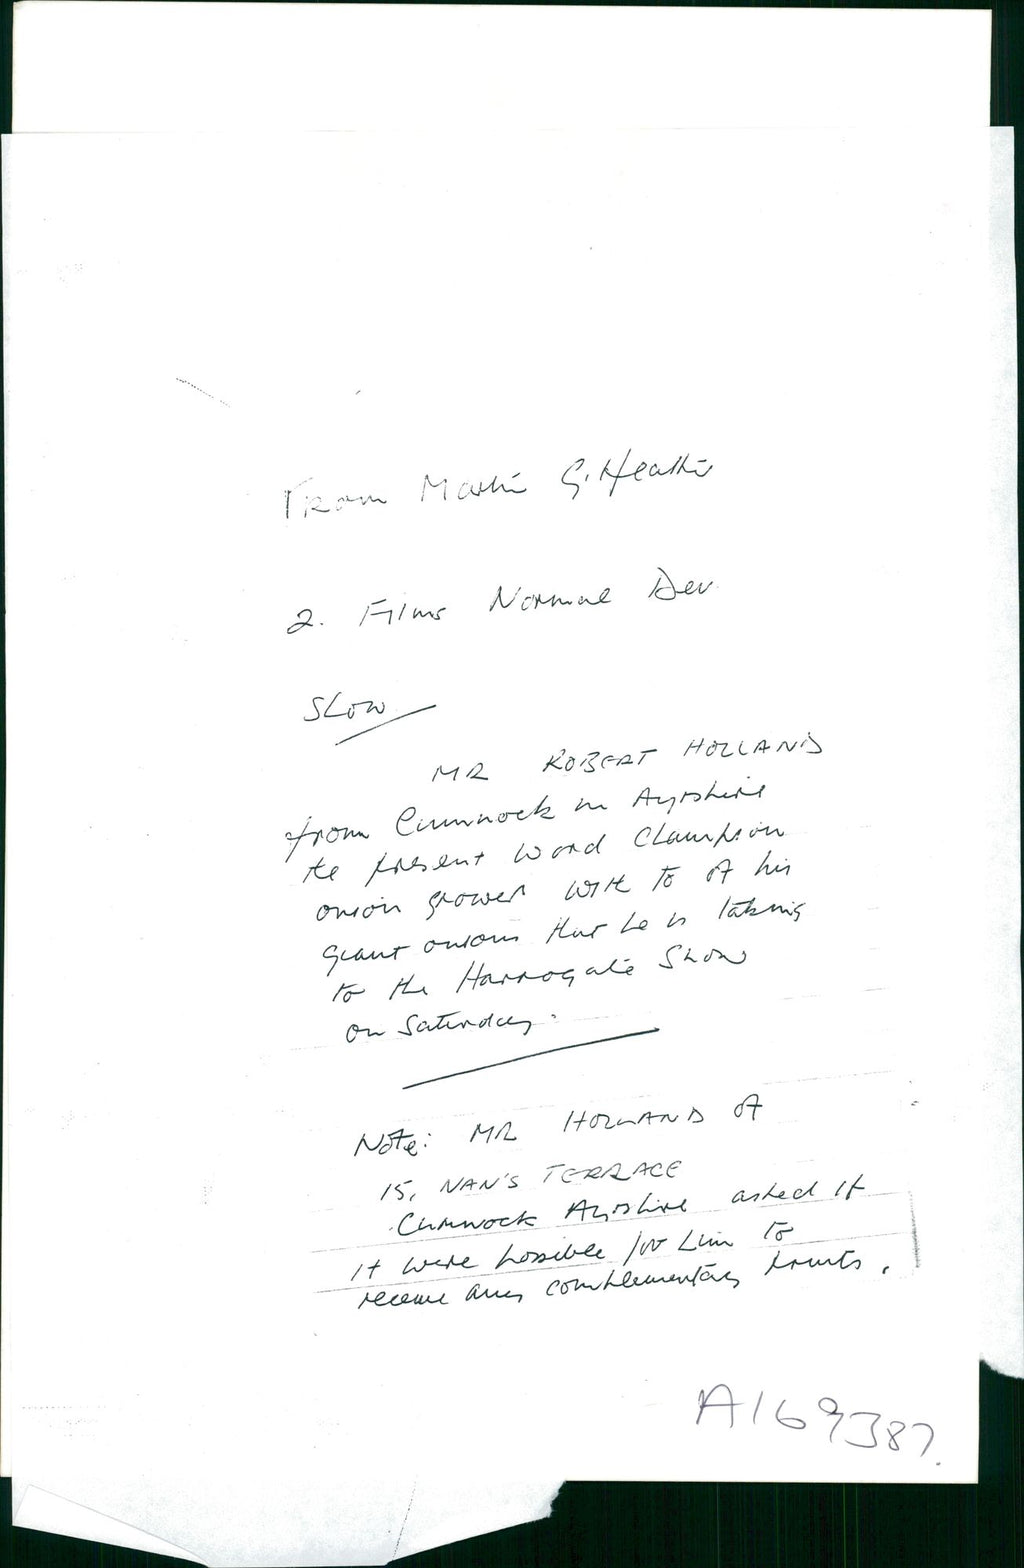 From Martin G. Heathe
2. Films Normal Dev.
SLOW
MR ROBERT HOLLAND
from Cumnock in Ayrshire
the present World Champion
onion grower with to of his
giant onions that he is taking
to the Harrogate Show
on Saturday.
Note: MR HOLLAND of
15, NAN'S TERRACE
Cumnock Ayrshire asked if
it were possible for him to
receive any complementary prints.
A169387.